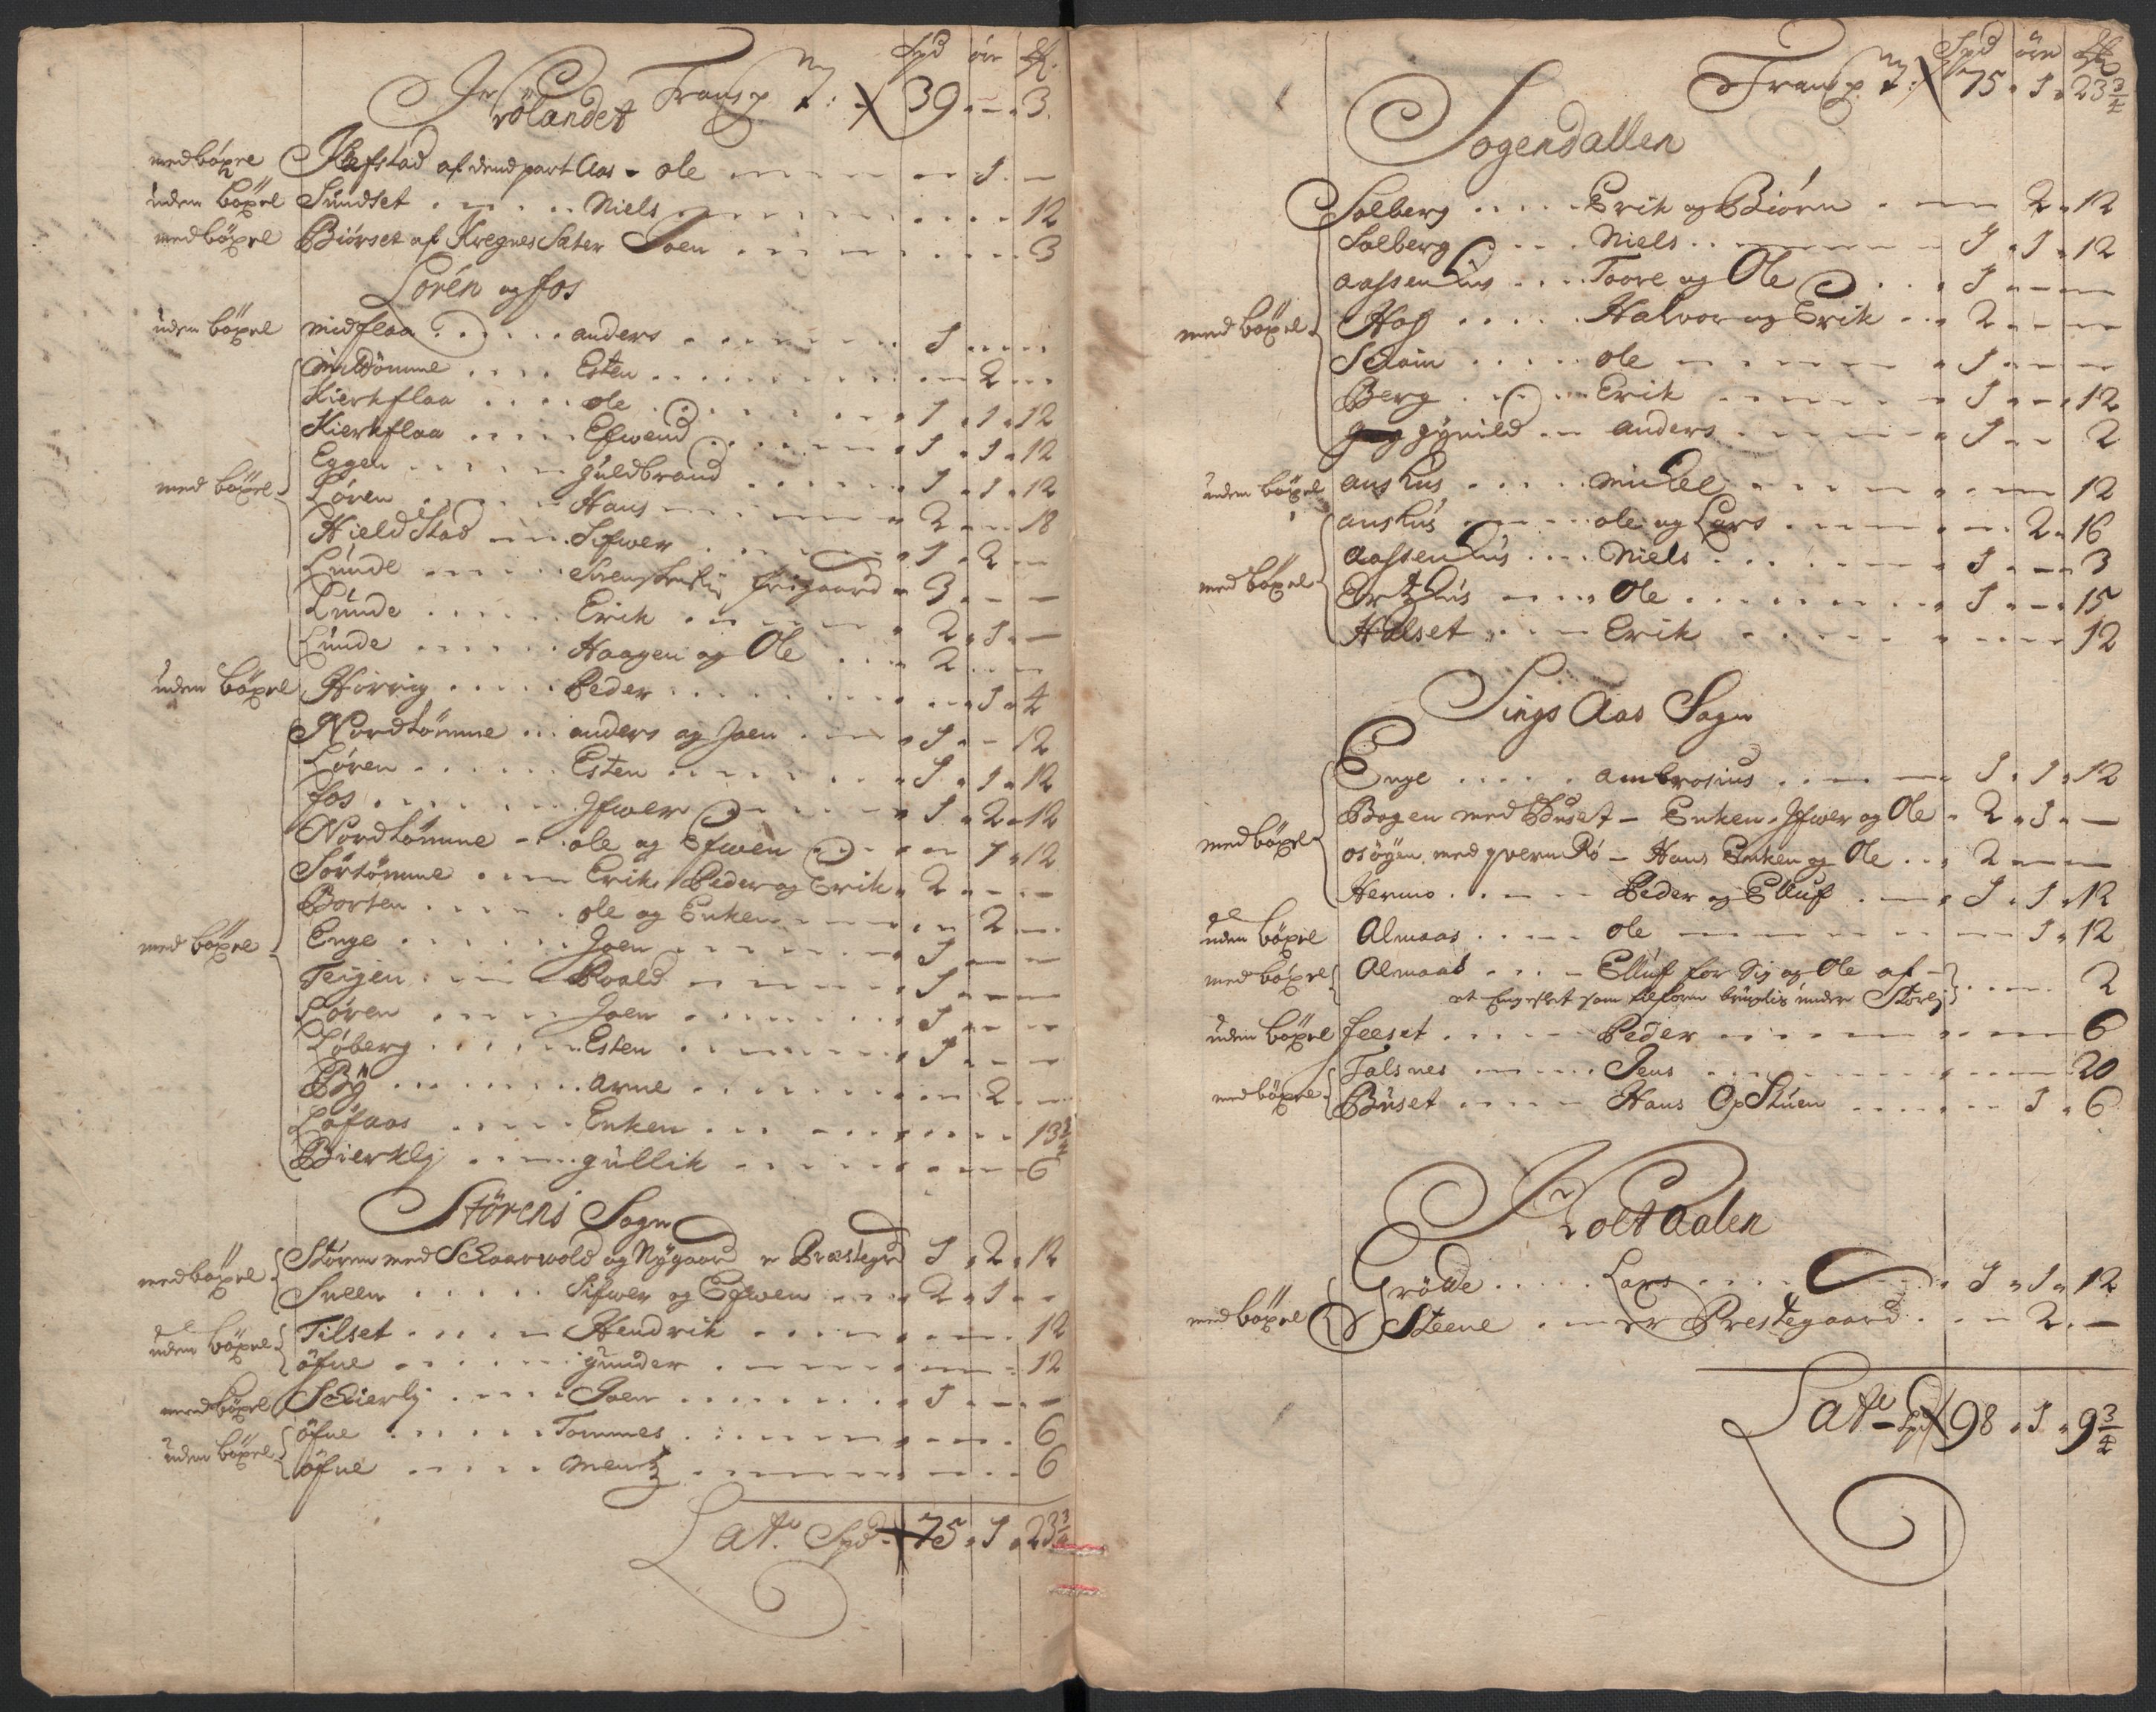 Spd öre
Transp. 39 - 3
Jrölandet
med böxel Refstad af dend part Aas - ole 1 -
uden böxel Sundset Niels 12
med böxel Biörset af Kregnes Sæter Joen 3
Lorén og fos
uden böxel midflaa anders 1
Midtömme Esten 2
Kierkflaa ole 1 1 12
Kierkflaa Efwend 1 1 12
Eggen guldbrand 1 1 12
med böxel Løren Hans 2 - 18
Hield Stad Sifwer 1 2 -
Lunde frigaard 3 - -
Lunde Erik 2 1 -
Lunde Haagen og Ole 2
uden böxel Horrig Peder 1 4
Nordtömme anders og Joen 1 - 12
Løren Esten 1 1 12
fos Jfwer 1 2 12
Nordtömme ole og Efwen 1 12
Sörtömme Erik, Peder og Erik 2 - -
Borten ole og Enken 2
med böxel Enge Joen 1
Teigen Roald 1
Søren Joen 1
Løberg Esten 1
Bÿ arne 2
Løfaas Enken 13 3/4
Bierklj gullik 6
Störens Sogn
med böxel Støren med Schaarwold og Nÿgaard er Præstegrd 1 2 12
Sneen Sifwer og Efwen 2 1
uden böxel Tilset Hendrik 12
öfne gunder 12
med böxel Schierlj Joen 1
uden böxel öfne Tommes 6
öfne Mentz 6
Late Spd 75 1 23 3/4
Spd öre
Transp. 75 1 23 3/4
Sogendallen
Solberg Erik og Biörn 2 12
Solberg Niels 1 1 12
aassenhus Toore og Ole 1
med böxel Hog Halvor og Erik 2
Schoin ole 1
Berg Erik 1 - 12
gÿnild anders 1 - 2
uden böxel aushus michel 12
aushus ole og Lars 2 16
med böxel Aassenhus Niels 1 - 3
Ertzhus Ole 1 - 15
Halset Erik 12
Sings Aas Sogn
Enge ambrosius 1 1 12
med böxel Bogen med Buset - Enken, Jfwer og Ole 2 1 -
osöyen med qvern Rö - Hans Enken og Ole 2
Hermo Peder og Elluf 1 1 12
uden böxel Almaas ole 1 12
med böxel Almaas Elluf for Sig og Ole af - 2
et Engeslet som tilforn brugtis under Störe
uden böxel feeset Peder 6
med böxel Folsnes Jens 20
Buset Hans OpStuen 1 6
Holtaalen
med böxel Grödde Lars 1 1 12
Steene er Prestegaard 2 -
Late Spd 98 1 9 3/4